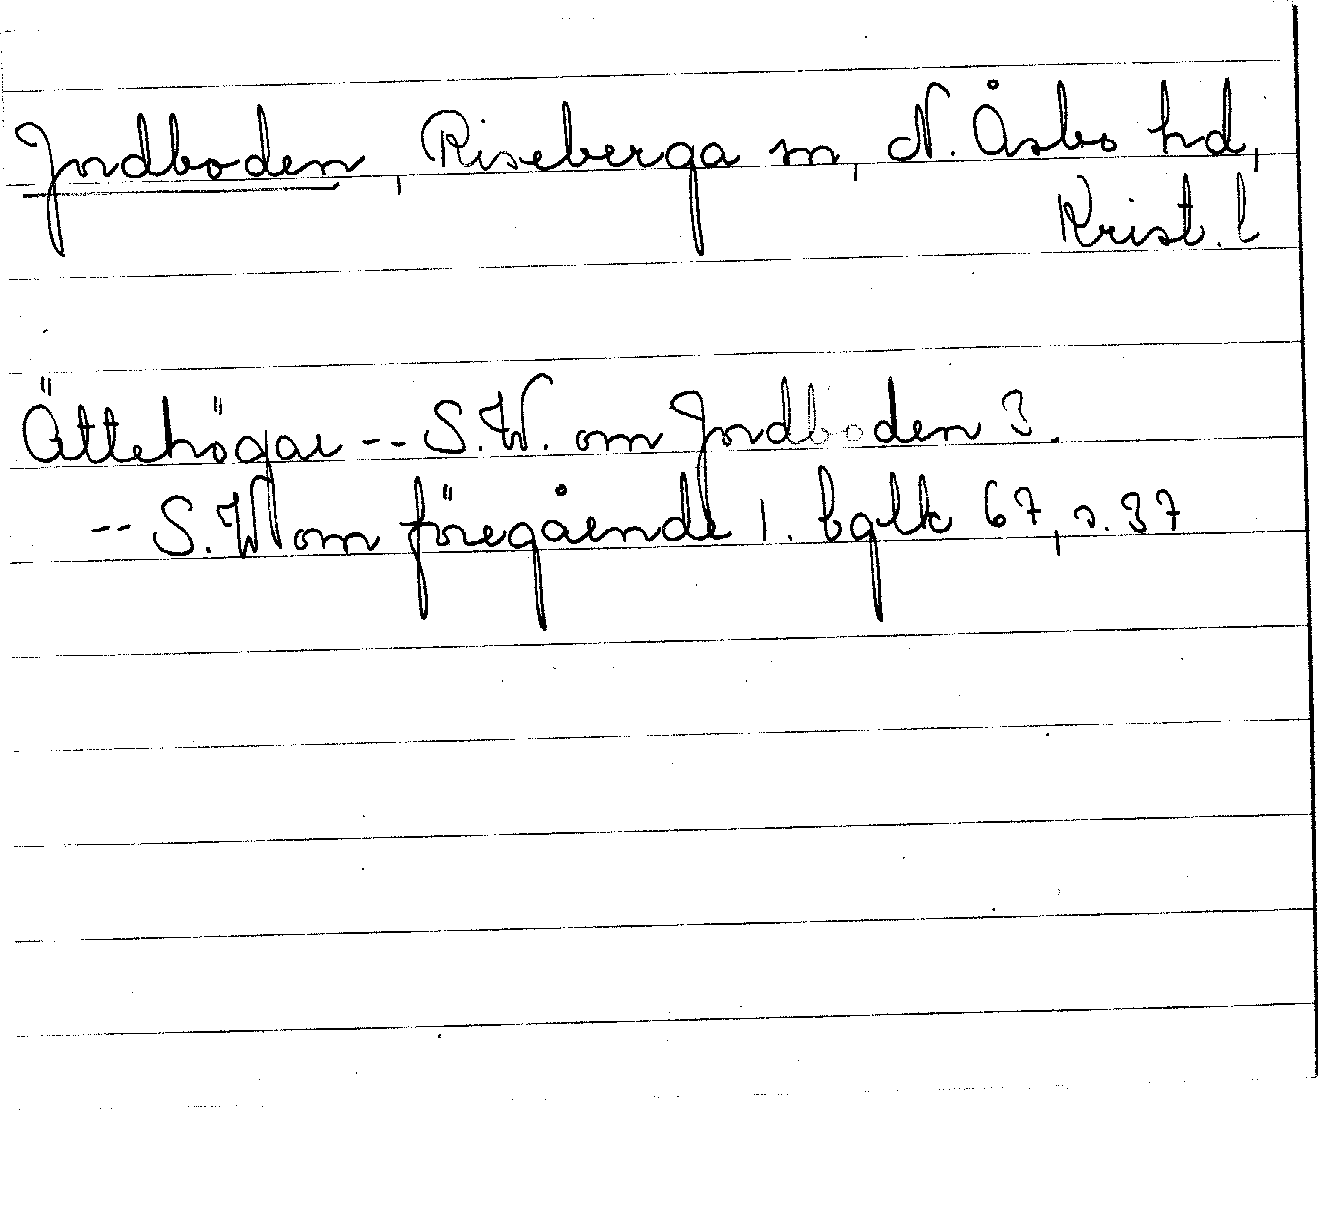 Jordboden, Riseberga sn, N. Åsbo hd,
Krist. l
Ättehögar -- S.W. om Jordboden 3.
-- S.W om föregående 1. bglk 67, s. 37